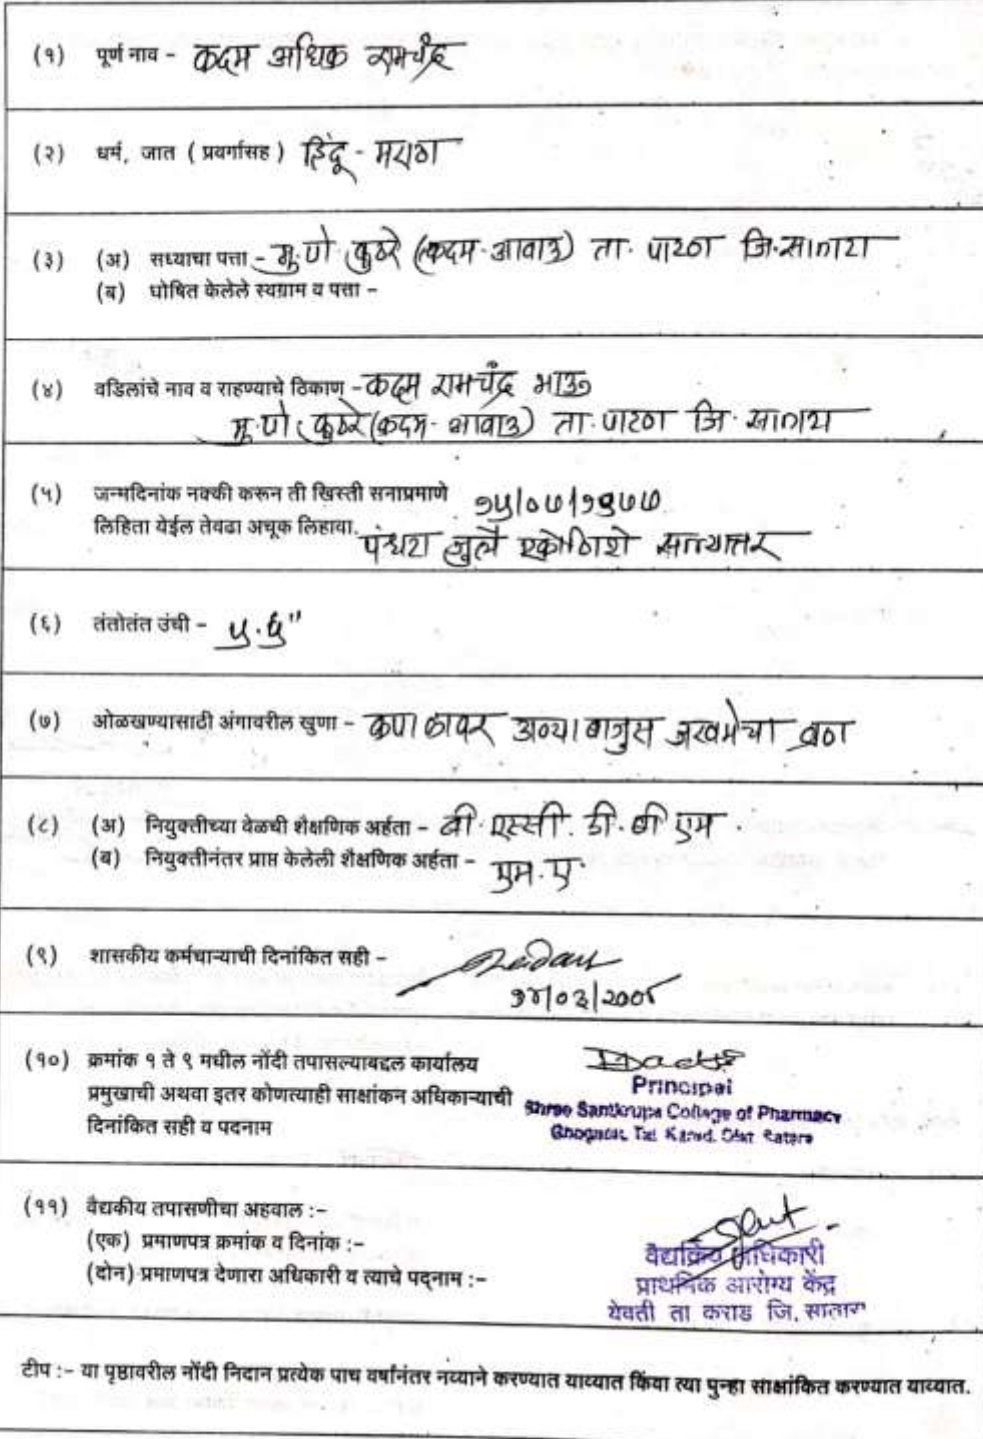 (१) पूर्ण नाव - कदम अधिक रामचंद्र
(२) धर्म, जात ( प्रवर्गासह ) हिंदू - मराठा
(३) (अ) सध्याचा पत्ता - मु.पो. कुठरे (कदम-आवाड) ता. पाटण जि. सातारा
(ब) घोषित केलेले स्वग्राम व पत्ता -
(४) वडिलांचे नाव व राहण्याचे ठिकाण - कदम रामचंद्र भाऊ
मु.पो. कुठरे (कदम-आवाड) ता. पाटण जि. सातारा
(५) जन्मदिनांक नक्की करून ती खिस्ती सनाप्रमाणे १५/०७/१९७७
लिहिता येईल तेवढा अचूक लिहावा. पंधरा जुलै एकोणिशे सत्यात्तर
(६) तंतोतंत उंची -
(७) ओळखण्यासाठी अंगावरील खुणा - कपाळावर डाव्या बाजुस जखमेचा व्रण
(८) (अ) नियुक्तीच्या वेळची शैक्षणिक अर्हता - बी. एस्सी. डी. बी एम.
(ब) नियुक्तीनंतर प्राप्त केलेली शैक्षणिक अर्हता - एम. ए.
(९) शासकीय कर्मचाऱ्याची दिनांकित सही -
(१०) क्रमांक १ ते ९ मधील नोंदी तपासल्याबद्दल कार्यालय
प्रमुखाची अथवा इतर कोणत्याही साक्षांकन अधिकाऱ्याची
दिनांकित सही व पदनाम
Principal
Shree Santkrupa College of Pharmacy
Ghogaon, Tal. Karad. Dist. Satara
(११) वैद्यकीय तपासणीचा अहवाल :-
(एक) प्रमाणपत्र क्रमांक व दिनांक :-
(दोन) प्रमाणपत्र देणारा अधिकारी व त्याचे पद्नाम :-
वैद्यकिय अधिकारी
प्राथमिक आरोग्य केंद्र
येवती ता कराड जि. सातारा
टीप :- या पृष्ठावरील नोंदी निदान प्रत्येक पाच वर्षांनंतर नव्याने करण्यात याव्यात किंवा त्या पुन्हा साक्षांकित करण्यात याव्यात.